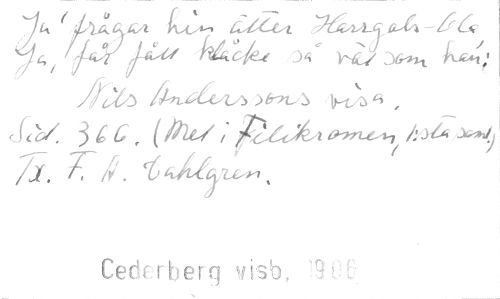 Ja' frågar hin ätter Harrgals-Ola
Ja, får fått klåcke så väl som han:
Nils Anderssons visa.
Sid. 366. (Mel i Filikromen, 1:sta saml.)
Tx. F. A. Dahlgren.
Cederberg visb, 1906